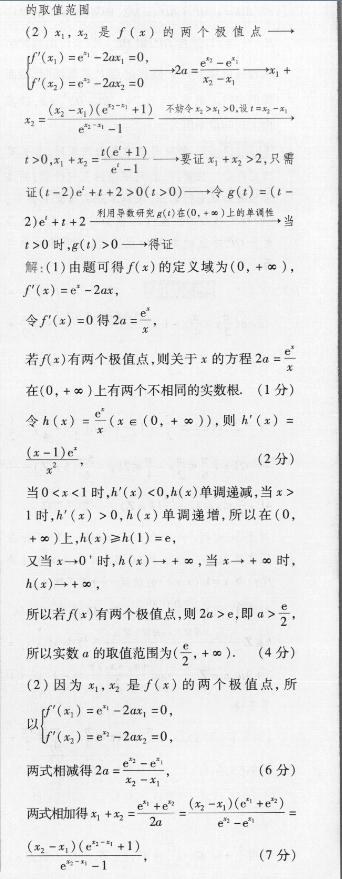 的取值范围
(2) x₁, x₂ 是 f(x) 的两个极值点 ⟶
{f′(x₁) = e^{x₁} − 2ax₁ = 0, f′(x₂) = e^{x₂} − 2ax₂ = 0 ⟶ 2a = (e^{x₂} − e^{x₁})/(x₂ − x₁) ⟶ x₁ +
x₂ = (x₂ − x₁)(e^{x₂−x₁} + 1)/(e^{x₂−x₁} − 1) 不妨令x₂>x₁>0,设t=x₂−x₁⟶
t>0, x₁ + x₂ = t(eᵗ + 1)/(eᵗ − 1) ⟶ 要证 x₁ + x₂ > 2, 只需
证(t−2)eᵗ + t + 2 > 0(t>0) ⟶ 令 g(t) = (t −
2)eᵗ + t + 2 利用导数研究g(t)在(0,+∞)上的单调性⟶ 当
t>0 时, g(t) > 0 ⟶ 得证
解:(1)由题可得 f(x) 的定义域为(0, +∞),
f′(x) = eˣ − 2ax,
令 f′(x) = 0 得 2a = eˣ/x,
若 f(x) 有两个极值点,则关于 x 的方程 2a = eˣ/x
在(0, +∞)上有两个不相同的实数根. (1分)
令 h(x) = eˣ/x (x ∈ (0, +∞)), 则 h′(x) =
(x−1)eˣ/x², (2分)
当 0<x<1 时, h′(x)<0, h(x)单调递减,当 x>
1 时, h′(x)>0, h(x)单调递增,所以在(0,
+∞)上, h(x)≥h(1) = e,
又当 x→0⁺ 时, h(x)→+∞, 当 x→+∞ 时,
h(x)→+∞,
所以若 f(x) 有两个极值点,则 2a>e,即 a>e/2,
所以实数 a 的取值范围为(e/2, +∞). (4分)
(2) 因为 x₁, x₂ 是 f(x) 的两个极值点,所
以{f′(x₁) = e^{x₁} − 2ax₁ = 0, f′(x₂) = e^{x₂} − 2ax₂ = 0,
两式相减得 2a = (e^{x₂} − e^{x₁})/(x₂ − x₁), (6分)
两式相加得 x₁ + x₂ = (e^{x₁} + e^{x₂})/2a = (x₂ − x₁)(e^{x₁} + e^{x₂})/(e^{x₂} − e^{x₁}) =
(x₂ − x₁)(e^{x₂−x₁} + 1)/(e^{x₂−x₁} − 1), (7分)